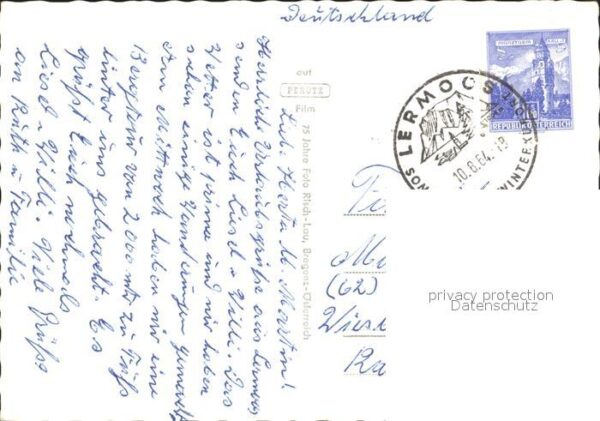 Deutschland
Lb. Herta u. Martin!
Herzliche Urlaubsgrüße aus Lermoos
senden Euch Liesel u. Willi. Das
Wetter ist prima und wir haben
schon einige Wanderungen gemacht.
Am Mittwoch haben wir eine
Bergtour von 2000 mtr zu Fuß
hinter uns gebracht. Es
grüßt Euch nochmals
Liesel u. Willi. Viele Grüße
an Ruth u. Familie
auf
PERUTZ
Film
75 Jahre Foto Risch-Lau, Bregenz-Österreich
LERMOOS
10.8.64.-18
WINTERKUR
REPUBLIK ÖSTERREICH
(62)
Wies
privacy protection
Datenschutz